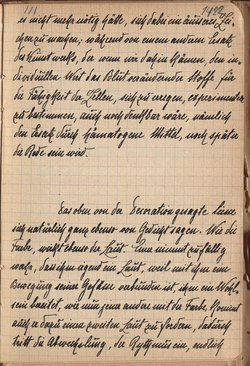 111
es nicht mehr nötig hätte, sich dabei ein äusseres
zu machen; während von einem anderen Ersatz
des Kunstwerks, der wenn wir dahin kämen, den in-
dividuellen Wert das Blut verändernde Stoffe, für
die Fähigkeit der Zellen, sich zu erregen, experimentell
zu bestimmen, auch noch denkbar wäre, nämlich
den Ersatz durch hämatogene Mittel, noch später
die Rede sein wird.
Das oben von der Decoration gesagte liesse
sich natürlich ganz ebenso vom Gedicht sagen. Wie die
Farbe, wirkt ebenso der Laut. Eine nimmt zufällig
wahr, dass ihm irgend ein Laut, weil mit ihm eine
Bewegung seiner Gefässe verbunden ist, ihm ein Wohl-
sein bereitet, wie nun jene andere mit der Farbe. Kommt
auch er dazu einen zweiten Laut zu fordern, dadurch
tritt die Abwechslung, der Rythmus ein, endlich